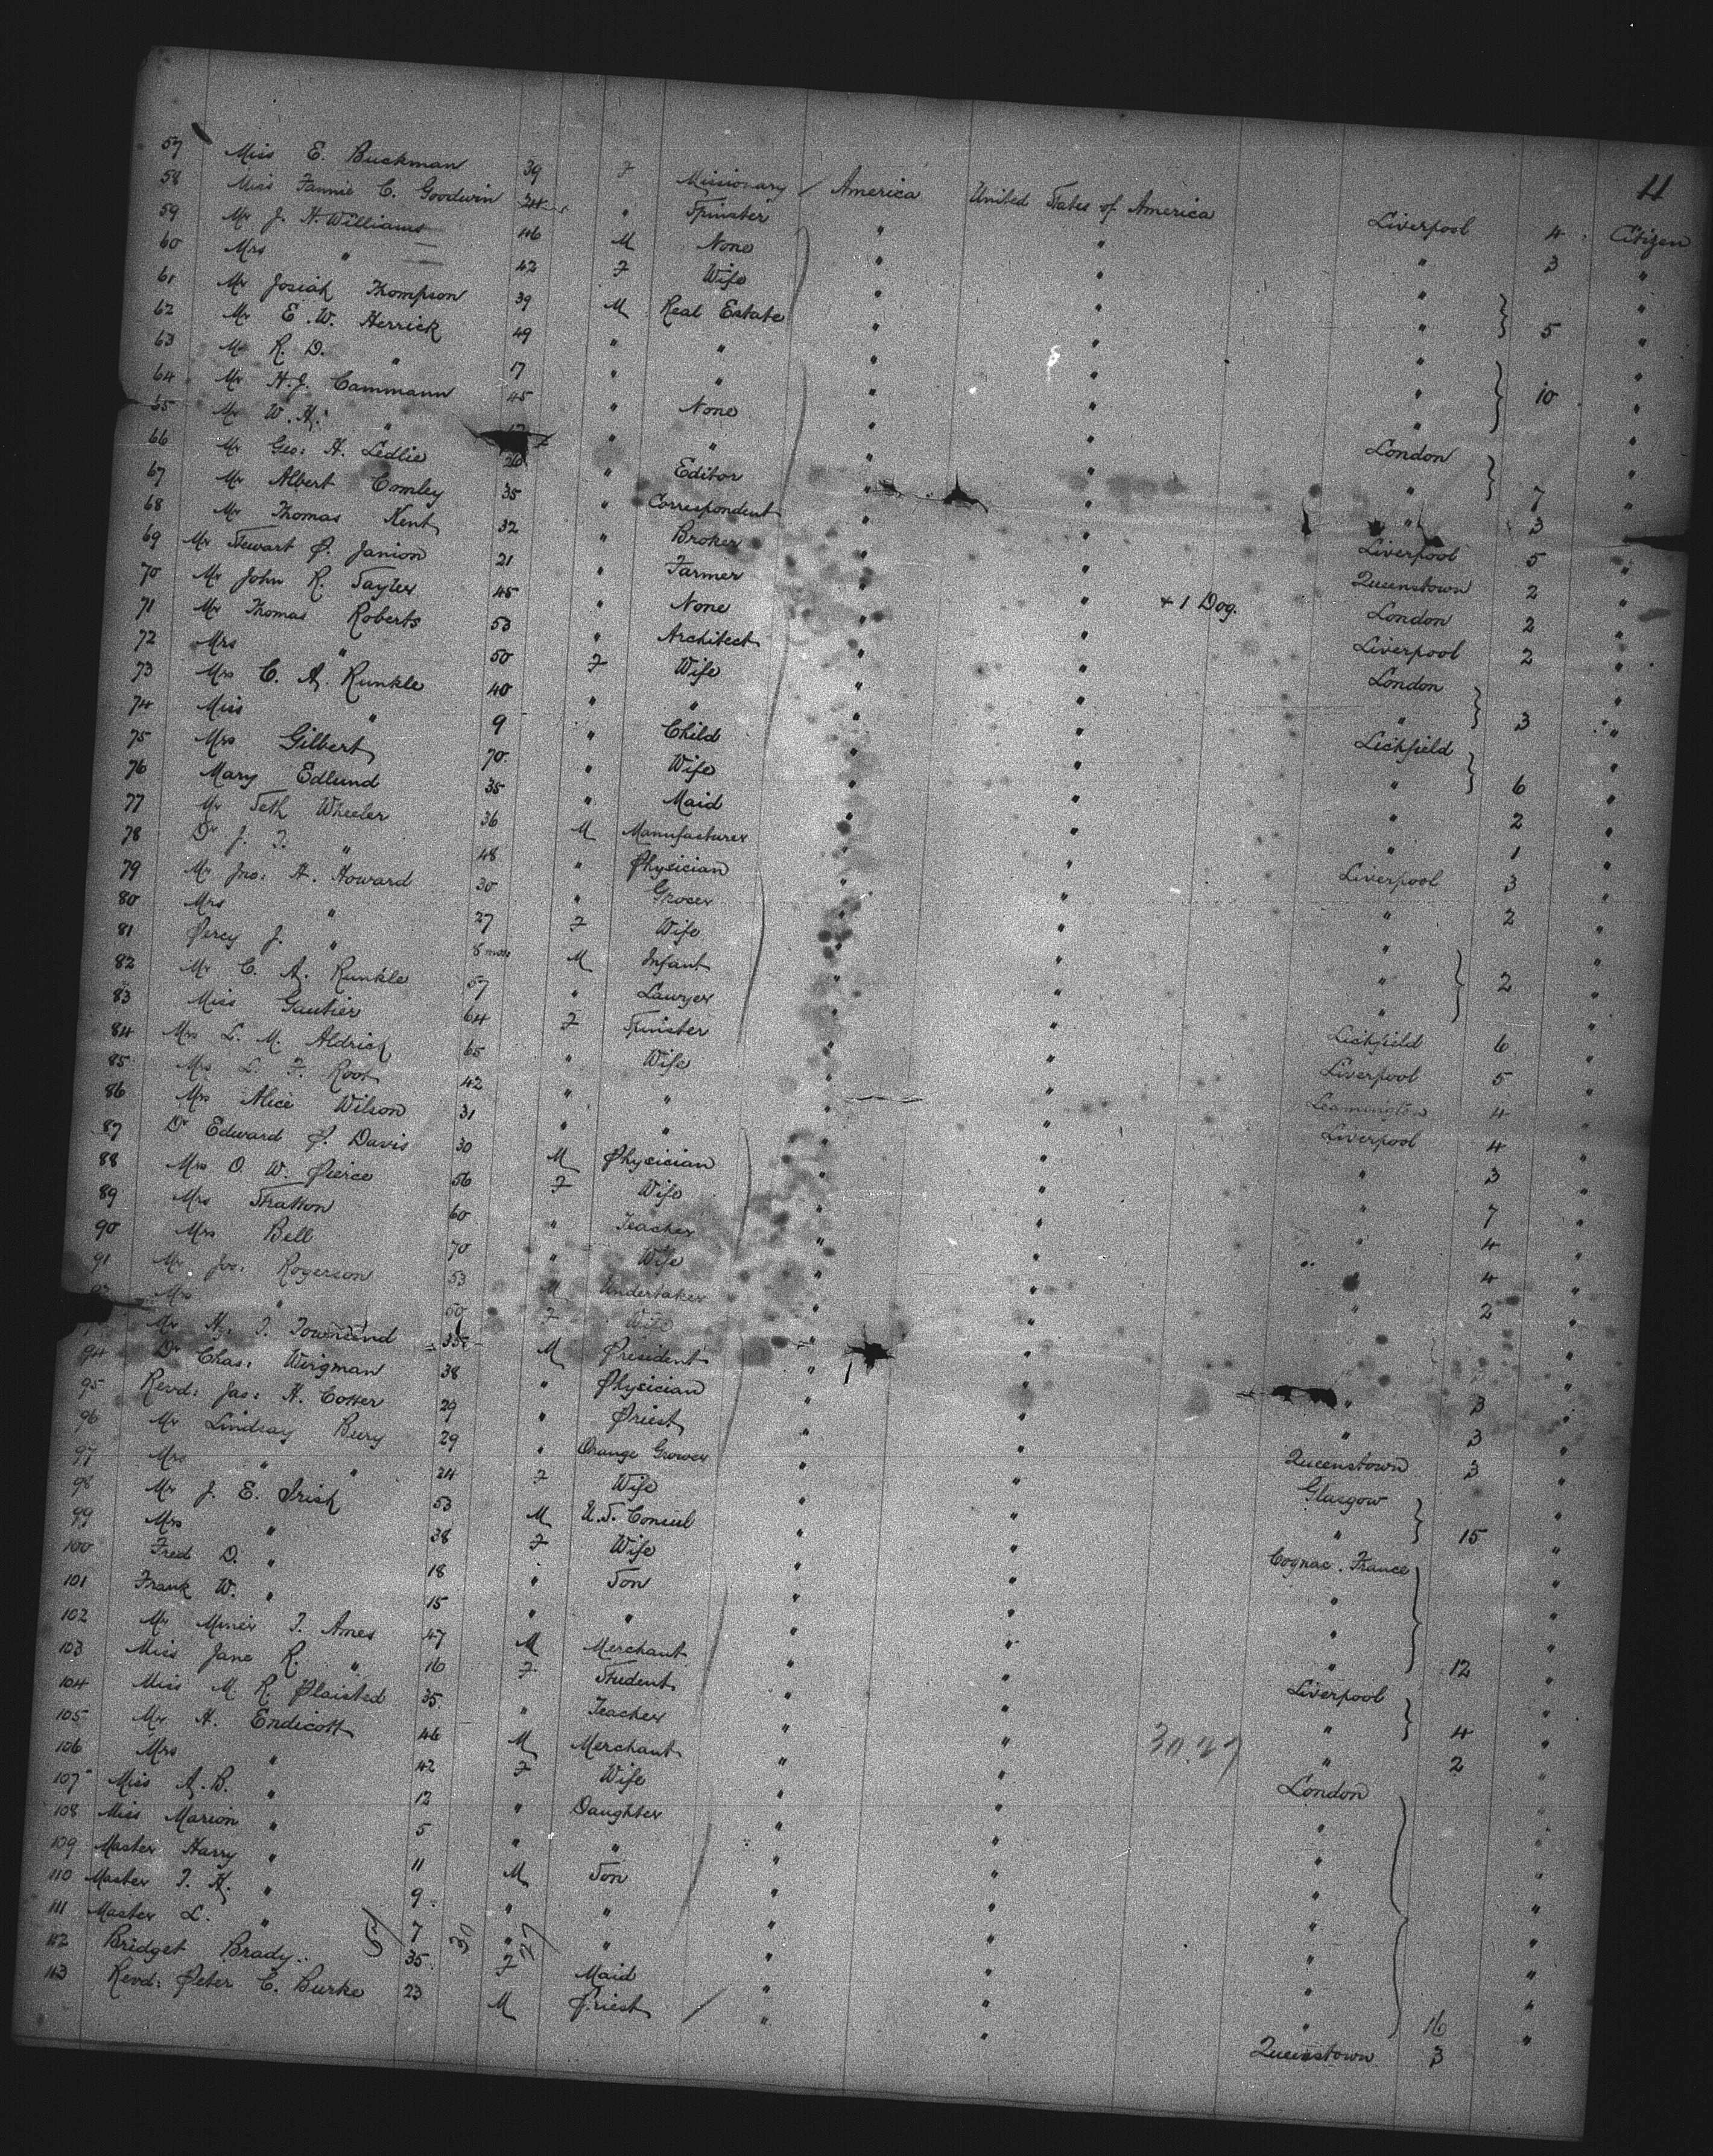 11
57 Miss E. Buckman 39 F Missionary America United States of America Liverpool 4 Citizen
58 Miss Fannie C. Goodwin " Spinster " " " 3 "
59 Mr J. H. Williams 46 M None " " " "
60 Mrs " 42 F Wife " " " 5 "
61 Mr Josiah Thompson 39 M Real Estate " " " "
62 Mr E. W. Herrick 49 " " " " " 10 "
63 Mr R. D. " 17 " " " " " "
64 Mr H. J. Cammann 45 " None " " London "
65 Mr W. H. " " " " " " 7 "
66 Mr Geo: H. Ledlie 36 " Editor " " " 3 "
67 Mr Albert Comley 35 " Correspondent " " Liverpool 5 "
68 Mr Thomas Kent 32 " Broker " " Queenstown 2 "
69 Mr Stewart P. Janion 21 " Farmer " " London 2 "
70 Mr John R. Tayler 45 " None " " + 1 Dog. Liverpool 2 "
71 Mr Thomas Roberts 53 " Architect " " London "
72 Mrs " 50 F Wife " " " 3 "
73 Mrs C. A. Runkle 40 " " " " Lichfield "
74 Miss " 9 " Child " " " 6 "
75 Mrs Gilbert 70 " Wife " " " 2 "
76 Mary Edlund 35 " Maid " " " 1 "
77 Mr Seth Wheeler 36 M Manufacturer " " Liverpool 3 "
78 Dr J. T. " 48 " Physician " " " 2 "
79 Mr Jno: H. Howard 30 " Grocer " " " "
80 Mrs " 27 F Wife " " " 2 "
81 Percy J. " 8 mos M Infant " " " "
82 Mr C. A. Runkle 57 " Lawyer " " Lichfield 6 "
83 Miss Gautier 64 F Spinster " " Liverpool 5 "
84 Mrs L. M. Aldrich 65 " Wife " " Leamington 4 "
85 Mrs L. F. Root 42 " " " " Liverpool 4 "
86 Mrs Alice Wilson 31 " " " " " 3 "
87 Dr Edward P. Davis 30 M Physician " " " 7 "
88 Mrs O. W. Pierce 56 F Wife " " " 4 "
89 Mrs Stratton 60 " Teacher " " " 4 "
90 Mrs Bell 70 " Wife " " " 2 "
91 Mr Jos: Rogerson 53 M Undertaker " " "
Mrs " 50 F Wife " " 3 "
Mr H. T. Townsend 35 M President " " " 3 "
94 Dr Chas: Wirgman 38 " Physician " " " 3 "
95 Revd: Jas: H. Cotter 29 " Priest " " Queenstown 3 "
96 Mr Lindsay Bury 29 " Orange Grower " " Glasgow "
97 Mrs " " 24 F Wife " " " 15 "
98 Mr J. E. Irish 53 M U.S. Consul " " Cognac. France "
99 Mrs " 38 F Wife " " " "
100 Fred D. " 18 " Son " " " "
101 Frank W. " 15 " " " " " 12 "
102 Mr Miner T. Ames 47 M Merchant " " Liverpool "
103 Miss Jane R. " 16 F Student " " " 4 "
104 Miss M. R. Plaisted 35 " Teacher " " " 2 "
105 Mr H. Endicott 46 M Merchant " " London "
106 Mrs " 42 F Wife " " " "
107 Miss A. B. " 12 " Daughter " " " "
108 Miss Marion " 5 " " " " " "
109 Master Harry " 11 M Son " " " "
110 Master T. H. " 9 " " " " " "
111 Master L. " 7 " " " " " "
112 Bridget Brady 35 F Maid " " " 16 "
113 Revd: Peter C. Burke 23 M Priest " " Queenstown 3 "
57 30 27
30.27